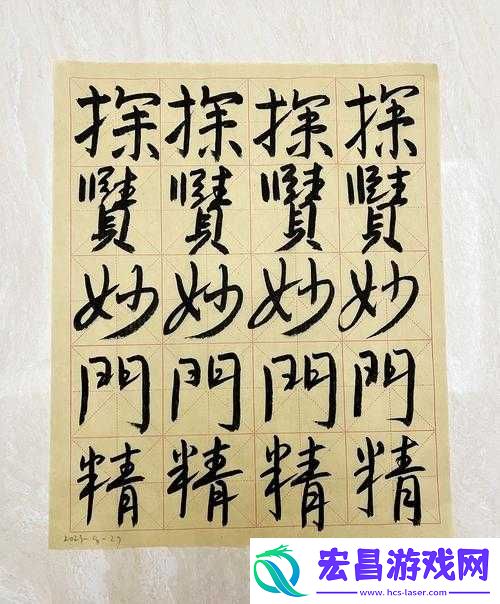 探探探探
賾賾賾賾
妙妙妙妙
門門門門
精精精精
宏昌游戏网
www.hcs-laser.com